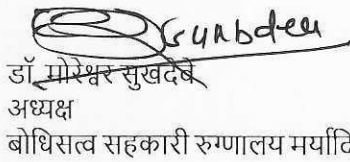 डॉ. मोरेश्वर सुखदेवे
अध्यक्ष
बोधिसत्व सहकारी रुग्णालय मर्यादि